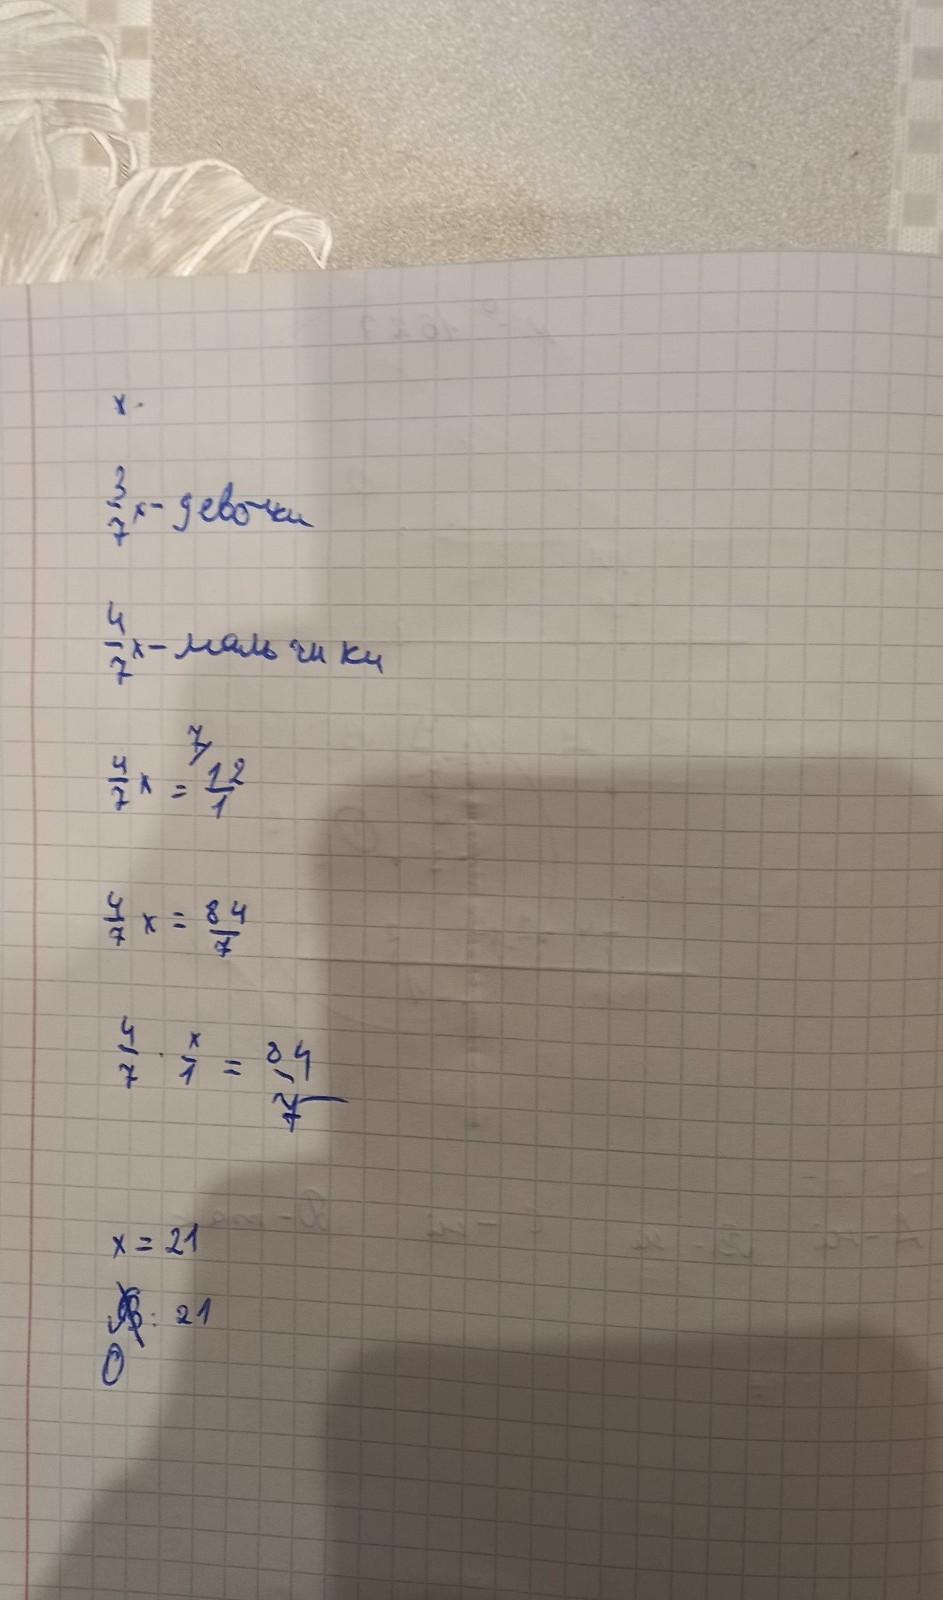 x -
3/7 x - девочки
4/7 x - мальчики
4/7 x = 7/ 12/1
4/7 x = 84/7
4/7 · x/1 = 84/7
x = 21
: 21
О